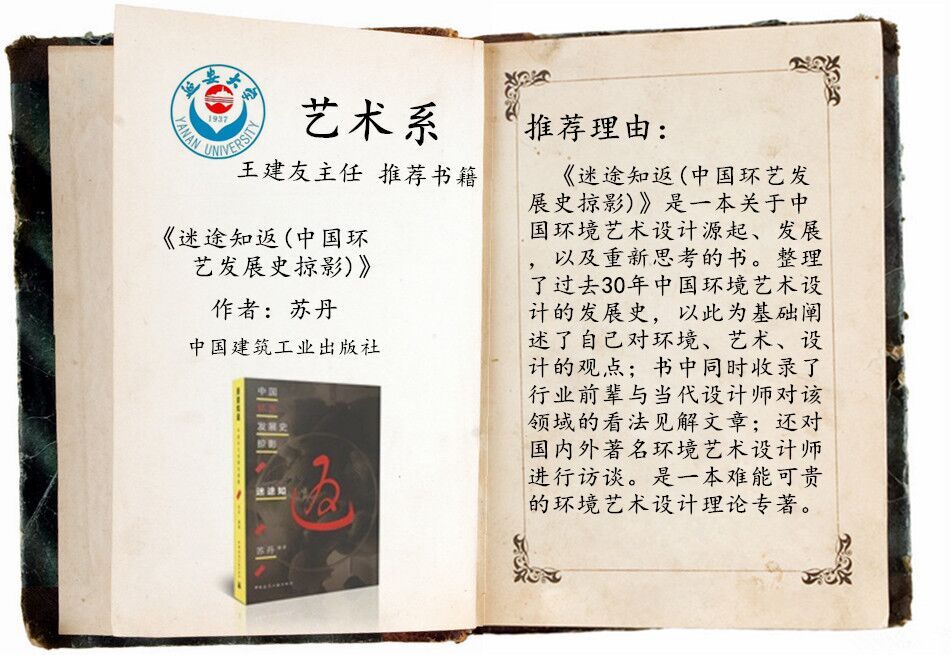 延安大学
1937
YANAN UNIVERSITY
艺术系
王建友主任 推荐书籍
《迷途知返(中国环
艺发展史掠影)》
作者：苏丹
中国建筑工业出版社
中国
环艺
发展史
掠影
迷途知
返
苏丹
推荐理由：
《迷途知返(中国环艺发
展史掠影)》是一本关于中
国环境艺术设计源起、发展
，以及重新思考的书。整理
了过去30年中国环境艺术设
计的发展史，以此为基础阐
述了自己对环境、艺术、设
计的观点；书中同时收录了
行业前辈与当代设计师对该
领域的看法见解文章；还对
国内外著名环境艺术设计师
进行访谈。是一本难能可贵
的环境艺术设计理论专著。